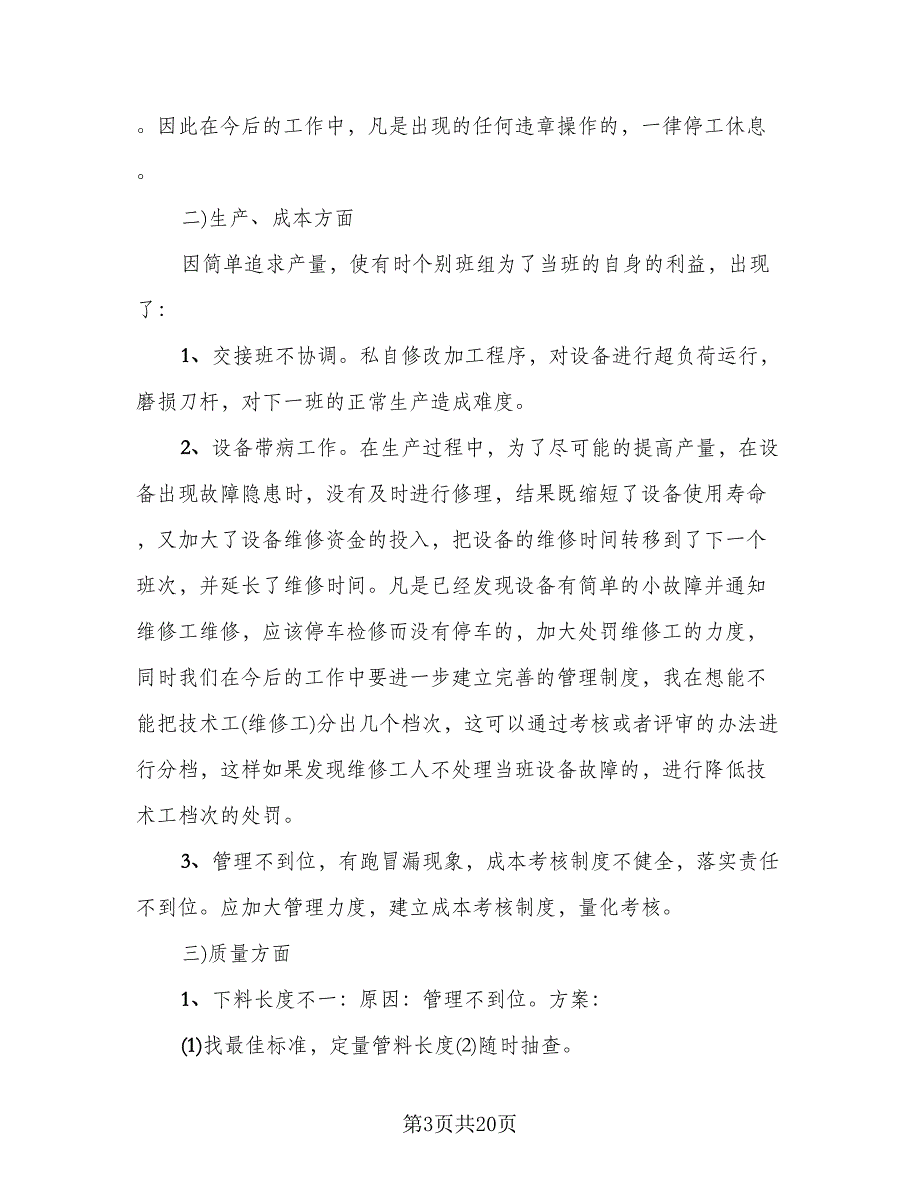 。因此在今后的工作中，凡是出现的任何违章操作的，一律停工休息
。
二)生产、成本方面
因简单追求产量，使有时个别班组为了当班的自身的利益，出现
了：
1、交接班不协调。私自修改加工程序，对设备进行超负荷运行，
磨损刀杆，对下一班的正常生产造成难度。
2、设备带病工作。在生产过程中，为了尽可能的提高产量，在设
备出现故障隐患时，没有及时进行修理，结果既缩短了设备使用寿命
，又加大了设备维修资金的投入，把设备的维修时间转移到了下一个
班次，并延长了维修时间。凡是已经发现设备有简单的小故障并通知
维修工维修，应该停车检修而没有停车的，加大处罚维修工的力度，
同时我们在今后的工作中要进一步建立完善的管理制度，我在想能不
能把技术工(维修工)分出几个档次，这可以通过考核或者评审的办法进
行分档，这样如果发现维修工人不处理当班设备故障的，进行降低技
术工档次的处罚。
3、管理不到位，有跑冒漏现象，成本考核制度不健全，落实责任
不到位。应加大管理力度，建立成本考核制度，量化考核。
三)质量方面
1、下料长度不一：原因：管理不到位。方案：
(1)找最佳标准，定量管料长度(2)随时抽查。
第3页共20页